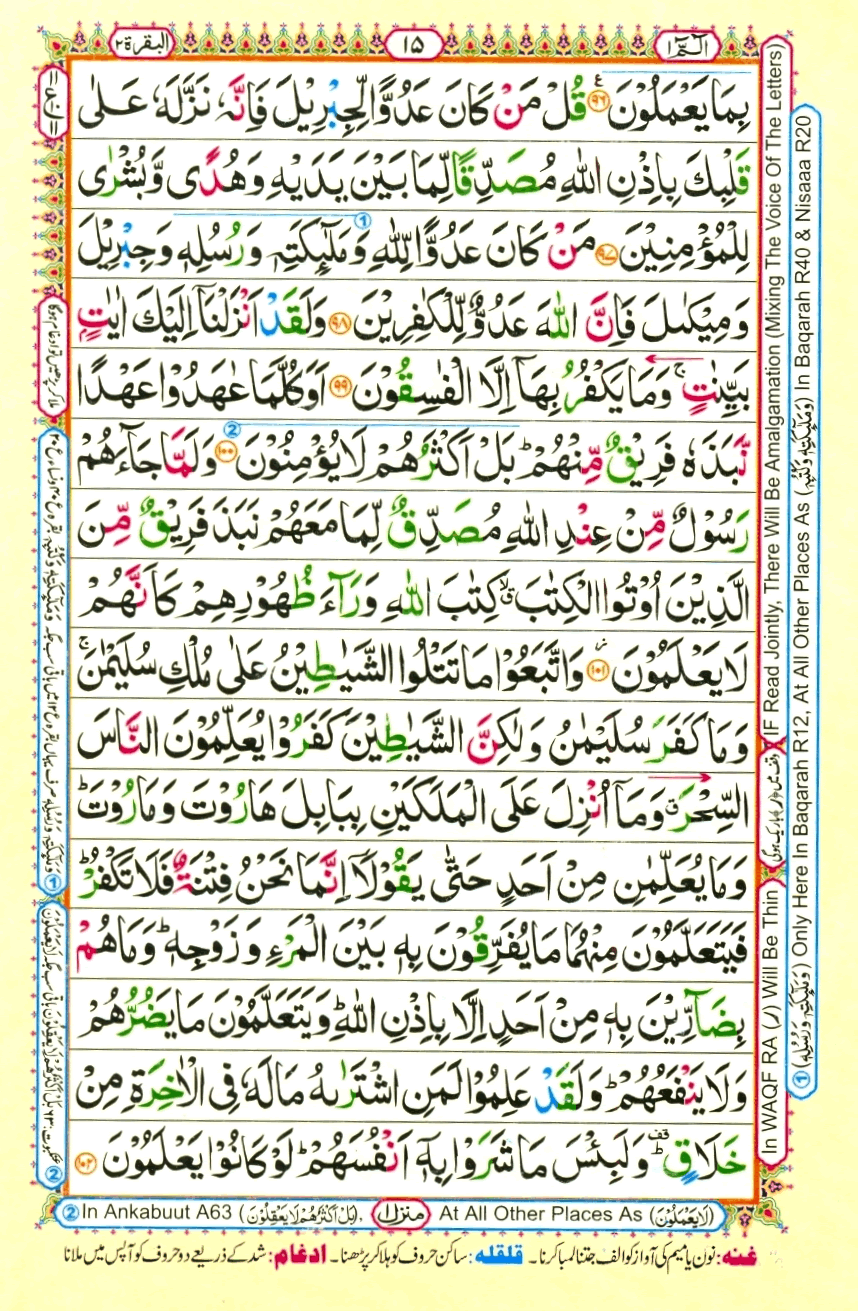 الٓمّٓ ١
١٥
البقرة ٢
بِمَا يَعْمَلُوْنَ ﴿٩٦﴾ قُلْ مَنْ كَانَ عَدُوًّا لِّجِبْرِيْلَ فَاِنَّهٗ نَزَّلَهٗ عَلٰى
قَلْبِكَ بِاِذْنِ اللّٰهِ مُصَدِّقًا لِّمَا بَيْنَ يَدَيْهِ وَهُدًى وَّبُشْرٰى
لِلْمُؤْمِنِيْنَ ﴿٩٧﴾ مَنْ كَانَ عَدُوًّا لِّلّٰهِ وَمَلٰٓئِكَتِهٖ وَرُسُلِهٖ وَجِبْرِيْلَ
وَمِيْكٰىلَ فَاِنَّ اللّٰهَ عَدُوٌّ لِّلْكٰفِرِيْنَ ﴿٩٨﴾ وَلَقَدْ اَنْزَلْنَاۤ اِلَيْكَ اٰيٰتٍۭ
بَيِّنٰتٍ ۚ وَمَا يَكْفُرُ بِهَاۤ اِلَّا الْفٰسِقُوْنَ ﴿٩٩﴾ اَوَكُلَّمَا عٰهَدُوْا عَهْدًا
نَّبَذَهٗ فَرِيْقٌ مِّنْهُمْ ؕ بَلْ اَكْثَرُهُمْ لَا يُؤْمِنُوْنَ ﴿١٠٠﴾ وَلَمَّا جَآءَهُمْ
رَسُوْلٌ مِّنْ عِنْدِ اللّٰهِ مُصَدِّقٌ لِّمَا مَعَهُمْ نَبَذَ فَرِيْقٌ مِّنَ
الَّذِيْنَ اُوْتُوا الْكِتٰبَ ۙۗ كِتٰبَ اللّٰهِ وَرَآءَ ظُهُوْرِهِمْ كَاَنَّهُمْ
لَا يَعْلَمُوْنَ ﴿١٠١﴾ وَاتَّبَعُوْا مَا تَتْلُوا الشَّيٰطِيْنُ عَلٰى مُلْكِ سُلَيْمٰنَ ۚ
وَمَا كَفَرَ سُلَيْمٰنُ وَلٰكِنَّ الشَّيٰطِيْنَ كَفَرُوْا يُعَلِّمُوْنَ النَّاسَ
السِّحْرَ ۗ وَمَاۤ اُنْزِلَ عَلَى الْمَلَكَيْنِ بِبَابِلَ هَارُوْتَ وَمَارُوْتَ ؕ
وَمَا يُعَلِّمٰنِ مِنْ اَحَدٍ حَتّٰى يَقُوْلَاۤ اِنَّمَا نَحْنُ فِتْنَةٌ فَلَا تَكْفُرْ ؕ
فَيَتَعَلَّمُوْنَ مِنْهُمَا مَا يُفَرِّقُوْنَ بِهٖ بَيْنَ الْمَرْءِ وَزَوْجِهٖ ؕ وَمَا هُمْ
بِضَآرِّيْنَ بِهٖ مِنْ اَحَدٍ اِلَّا بِاِذْنِ اللّٰهِ ؕ وَيَتَعَلَّمُوْنَ مَا يَضُرُّهُمْ
وَلَا يَنْفَعُهُمْ ؕ وَلَقَدْ عَلِمُوْا لَمَنِ اشْتَرٰىهُ مَا لَهٗ فِى الْاٰخِرَةِ مِنْ
خَلَاقٍ ؕ۫ وَلَبِئْسَ مَا شَرَوْا بِهٖۤ اَنْفُسَهُمْ ؕ لَوْ كَانُوْا يَعْلَمُوْنَ ﴿١٠٢﴾
In WAQF RA (ر) Will Be Thin
IF Read Jointly, There Will Be Amalgamation (Mixing The Voice Of The Letters)
① (وَمَلٰٓئِكَتِهٖ وَرُسُلِهٖ) Only Here In Baqarah R12, At All Other Places As (وَمَلٰٓئِكَتِهٖ وَكُتُبِهٖ) In Baqarah R40 & Nisaaa R20
② In Ankabuut A63 (بَلْ اَكْثَرُهُمْ لَا يَعْقِلُوْنَ), At All Other Places As (لَا يَعْمَلُوْنَ)
منزل ١
غنه: نون یا میم کی آواز کو الف جتنا لمبا کرنا۔ قلقله: ساکن حروف کو ہلا کر پڑھنا۔ ادغام: شد کے ذریعے دو حروف کو آپس میں ملانا